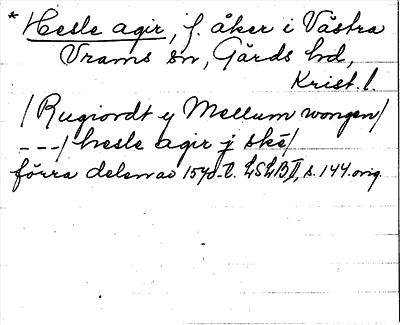 * Hesle agir, f. åker i Västra
Vrams sn, Gärds hd,
Krist. l.
/ Rugiordt y Mellum wongen/
---/ hesle agir j ské/
förra delen av 1570-t. LSLB I, s. 144. orig.